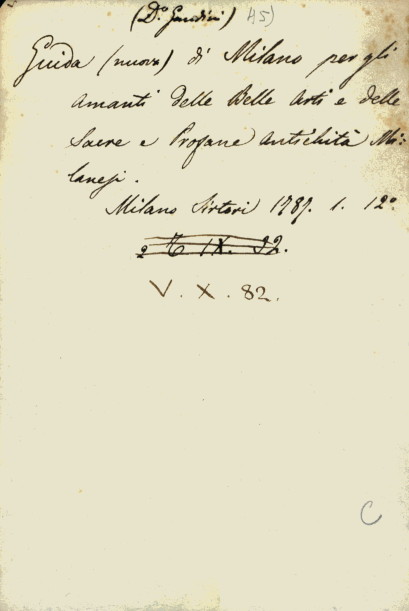 (D.º Gandini) 45)
Guida (nuova) di Milano per gli
amanti delle Belle Arti e delle
Sacre e Profane Antichità Mi:
lanesi.
Milano Sirtori 1787. 1. 12º
IX. 32.
V. X. 82.
C